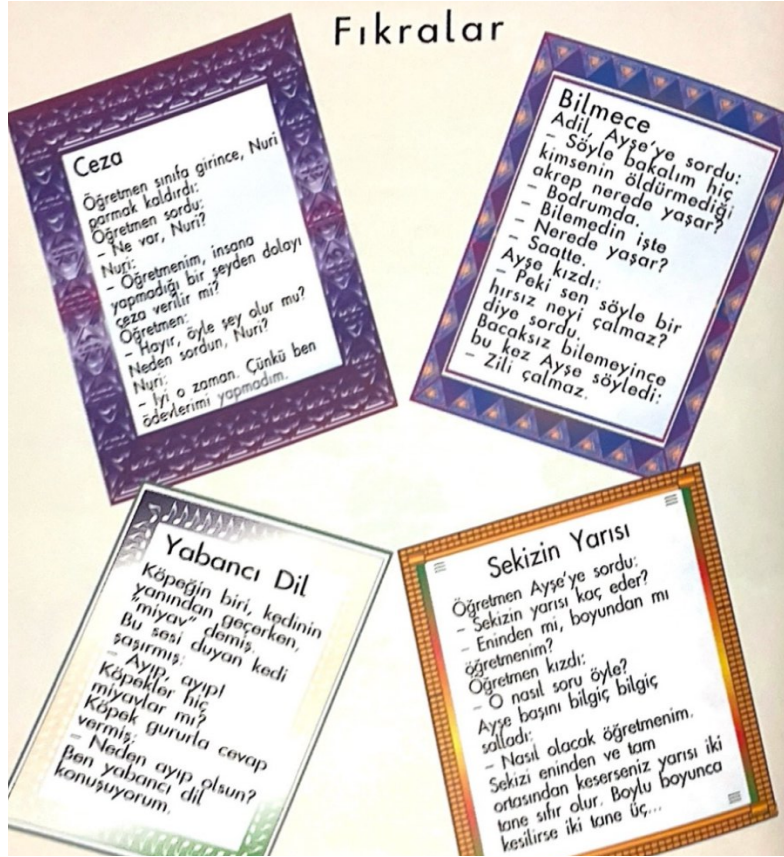 Fıkralar
Ceza
Öğretmen sınıfa girince, Nuri
parmak kaldırdı:
Öğretmen sordu:
- Ne var, Nuri?
Nuri:
- Öğretmenim, insana
yapmadığı bir şeyden dolayı
ceza verilir mi?
Öğretmen:
- Hayır, öyle şey olur mu?
Neden sordun, Nuri?
Nuri:
- İyi o zaman. Çünkü ben
ödevlerimi yapmadım.
Bilmece
Adil, Ayşe'ye sordu:
- Söyle bakalım hiç
kimsenin öldürmediği
akrep nerede yaşar?
- Bodrumda.
- Bilemedin işte
- Nerede yaşar?
- Saatte.
Ayşe kızdı:
- Peki sen söyle bir
hırsız neyi çalmaz?
diye sordu.
Bacaksız bilemeyince
bu kez Ayşe söyledi:
- Zili çalmaz.
Yabancı Dil
Köpeğin biri, kedinin
yanından geçerken,
"miyav" demiş.
Bu sesi duyan kedi
şaşırmış:
- Ayıp, ayıp!
Köpekler hiç
miyavlar mı?
Köpek gururla cevap
vermiş:
- Neden ayıp olsun?
Ben yabancı dil
konuşuyorum.
Sekizin Yarısı
Öğretmen Ayşe'ye sordu:
- Sekizin yarısı kaç eder?
- Eninden mi, boyundan mı
öğretmenim?
Öğretmen kızdı:
- O nasıl soru öyle?
Ayşe başını bilgiç bilgiç
salladı:
- Nasıl olacak öğretmenim.
Sekizi eninden ve tam
ortasından keserseniz yarısı iki
tane sıfır olur. Boylu boyunca
kesilirse iki tane üç...